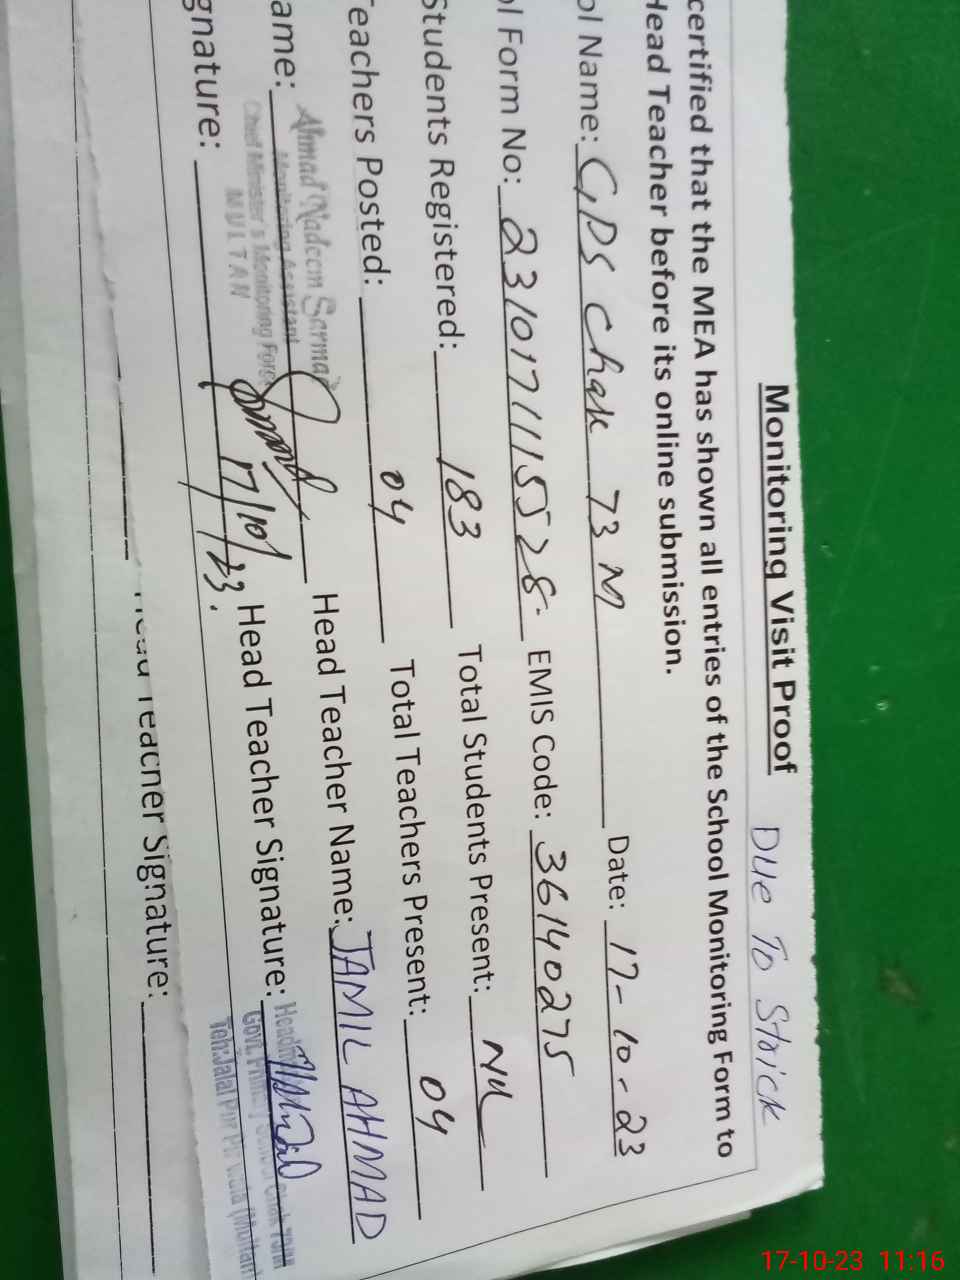 Monitoring Visit Proof DUe To Stoick
certified that the MEA has shown all entries of the School Monitoring Form to
Head Teacher before its online submission.
ol Name: GPS Chak 73 M Date: 17-10-23
ol Form No: 2310171115528. EMIS Code: 36140275
Students Registered: 183 Total Students Present: NIL
Teachers Posted: 04 Total Teachers Present: 04
ame: Ahmad Nadeem Sarmad Head Teacher Name: JAMIL AHMAD
Monitoring Assistant
Chief Minister's Monitoring Force
MULTAN
gnature: 17/10/23. Head Teacher Signature:
Govt. Primary School Chak 73/M
Teh: Jalal Pur Pir Wala (Multan)
Head Teacher Signature:
17-10-23 11:16